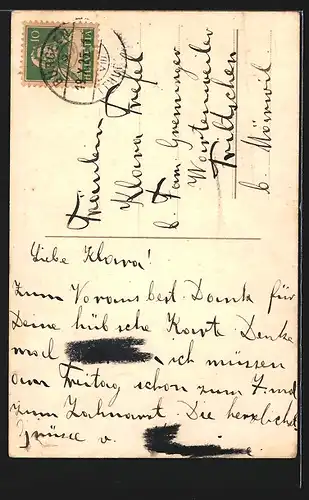 10
HELVETIA
Fräulein
Klara Frefel
b. Fam. Greminger
Wartenweiler
Friltschen
b. Mörwil
Liebe Klara!
Zum Voraus best Dank für
Deine hübsche Karte Denke
mal ich müssen
am Freitag schon zum
zum Zahnarzt. Die herzlichst
Grüsse v.